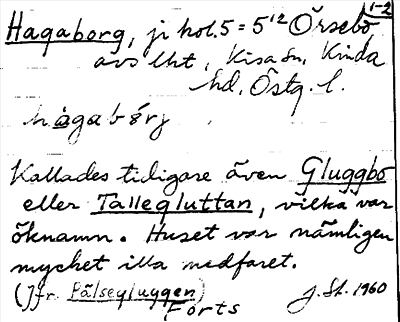 1-2
Hagaborg, jr hol. 5 = 5¹² Örsebo
avs lht, Kisa sn, Kinda
hd, Östg. l.
hàgabórj
Kallades tidigare även Gluggbo
eller Tallegluttan, vilka var
öknamn. Huset var nämligen
mycket illa medfaret.
(Jfr. Pälsegluggen)
Forts J. St. 1960